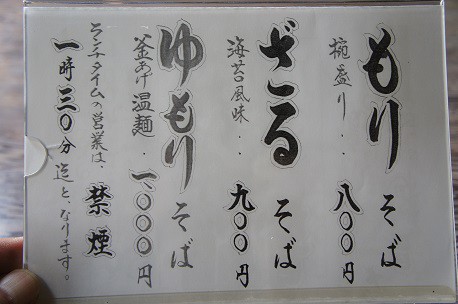 もりそば
椀盛り・・八〇〇円
ざるそば
海苔風味・九〇〇円
ゆもりそば
釜あげ温麺・一、〇〇〇円
ランチタイムの営業は、禁煙
一時三〇分迄と、なります。